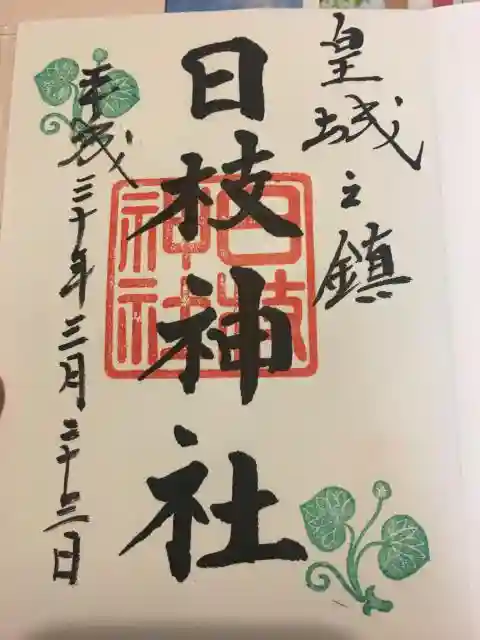 皇城之鎮
日枝神社
日枝
神社
平成三十年三月二十三日